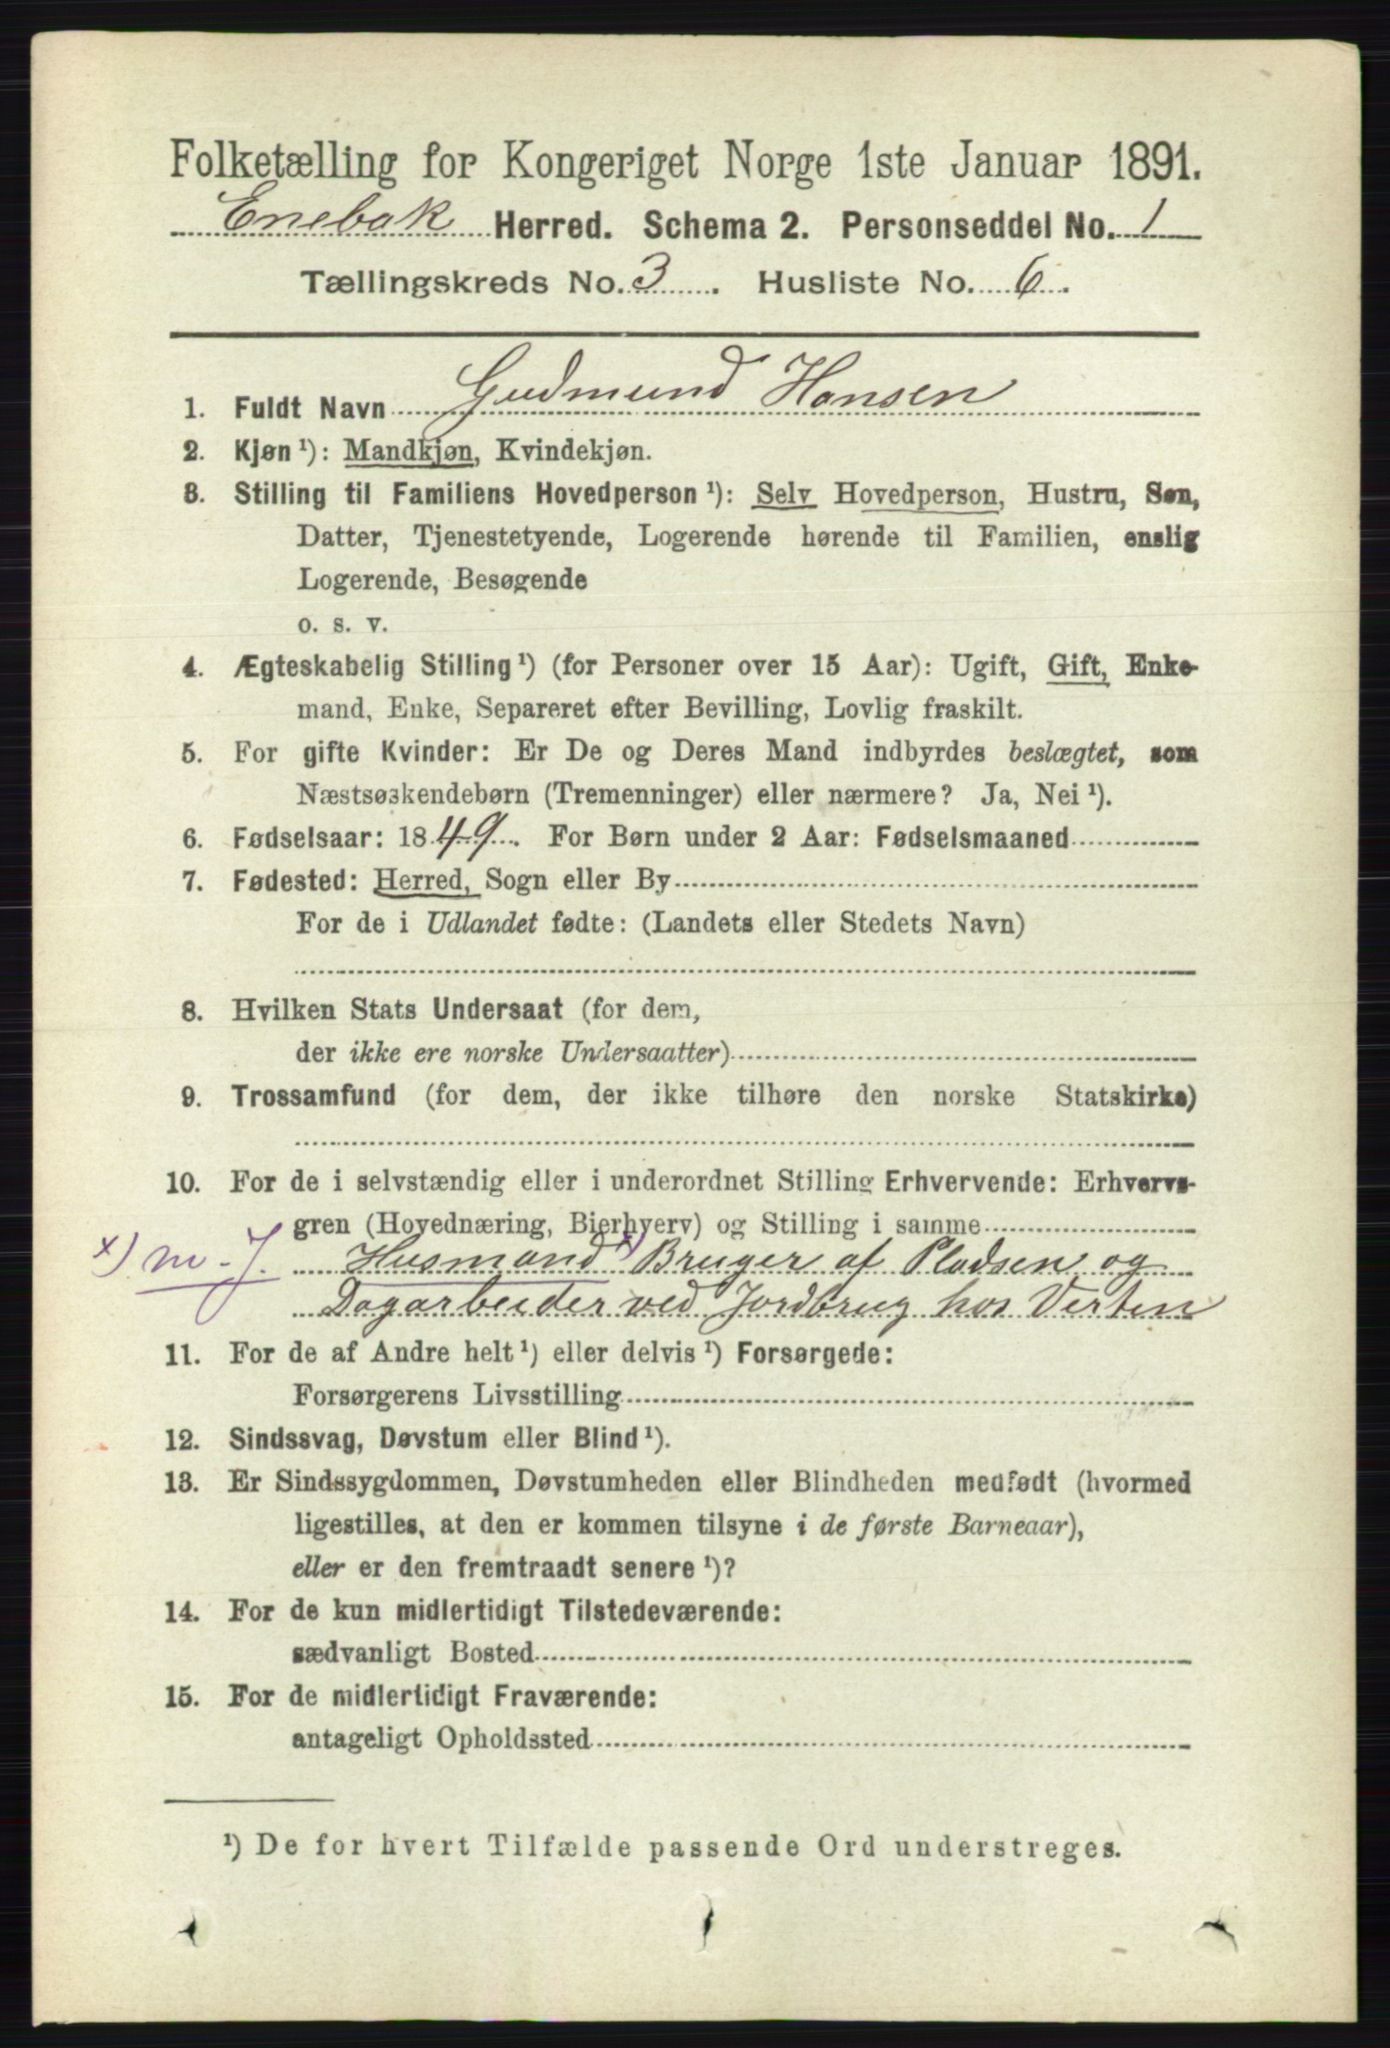 Folketælling for Kongeriget Norge 1ste Januar 1891.
Enebak Herred. Schema 2. Personseddel No. 1
Tællingskreds No. 3. Husliste No. 6.
1. Fuldt Navn Gudmund Hansen
2. Kjøn ¹): Mandkjøn, Kvindekjøn.
3. Stilling til Familiens Hovedperson ¹): Selv Hovedperson, Hustru, Søn,
Datter, Tjenestetyende, Logerende hørende til Familien, enslig
Logerende, Besøgende
o. s. v.
4. Ægteskabelig Stilling ¹) (for Personer over 15 Aar): Ugift, Gift, Enke-
mand, Enke, Separeret efter Bevilling, Lovlig fraskilt.
5. For gifte Kvinder: Er De og Deres Mand indbyrdes beslægtet, som
Næstsøskendebørn (Tremenninger) eller nærmere? Ja, Nei ¹).
6. Fødselsaar: 1849. For Børn under 2 Aar: Fødselsmaaned
7. Fødested: Herred, Sogn eller By
For de i Udlandet fødte: (Landets eller Stedets Navn)
8. Hvilken Stats Undersaat (for dem,
der ikke ere norske Undersaatter)
9. Trossamfund (for dem, der ikke tilhøre den norske Statskirke)
10. For de i selvstændig eller i underordnet Stilling Erhvervende: Erhvervs-
gren (Hovednæring, Bierhverv) og Stilling i samme
x) m. J. Husmand x) Bruger af Pladsen og
Dagarbeider ved Jordbrug hos Verten
11. For de af Andre helt ¹) eller delvis ¹) Forsørgede:
Forsørgerens Livsstilling
12. Sindssvag, Døvstum eller Blind ¹).
13. Er Sindssygdommen, Døvstumheden eller Blindheden medfødt (hvormed
ligestilles, at den er kommen tilsyne i de første Barneaar),
eller er den fremtraadt senere ¹)?
14. For de kun midlertidigt Tilstedeværende:
sædvanligt Bosted
15. For de midlertidigt Fraværende:
antageligt Opholdssted
¹) De for hvert Tilfælde passende Ord understreges.